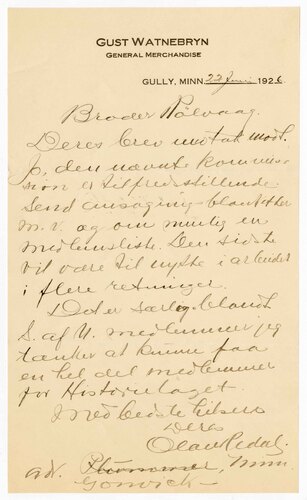 GUST WATNEBRYN
GENERAL MERCHANDISE
GULLY, MINN. 22 Juni 1926
Broder Rölvaag.
Deres brev mottat
Jo, den nævnte kommis-
sion er tilfredsstillende
Send ansøgningsblanketter
m. v. og om mulig en
medlemsliste. Den sidste
vil være til nytte i arbeidet
i flere retninger.
Det er særlig blandt
S. af N. medlemmer jeg
tænker at kunne faa
en hel del medlemmer
for Historielaget.
Med bedste hilsen
Deres
Olav Redal
Adr. Minn
Gonvick